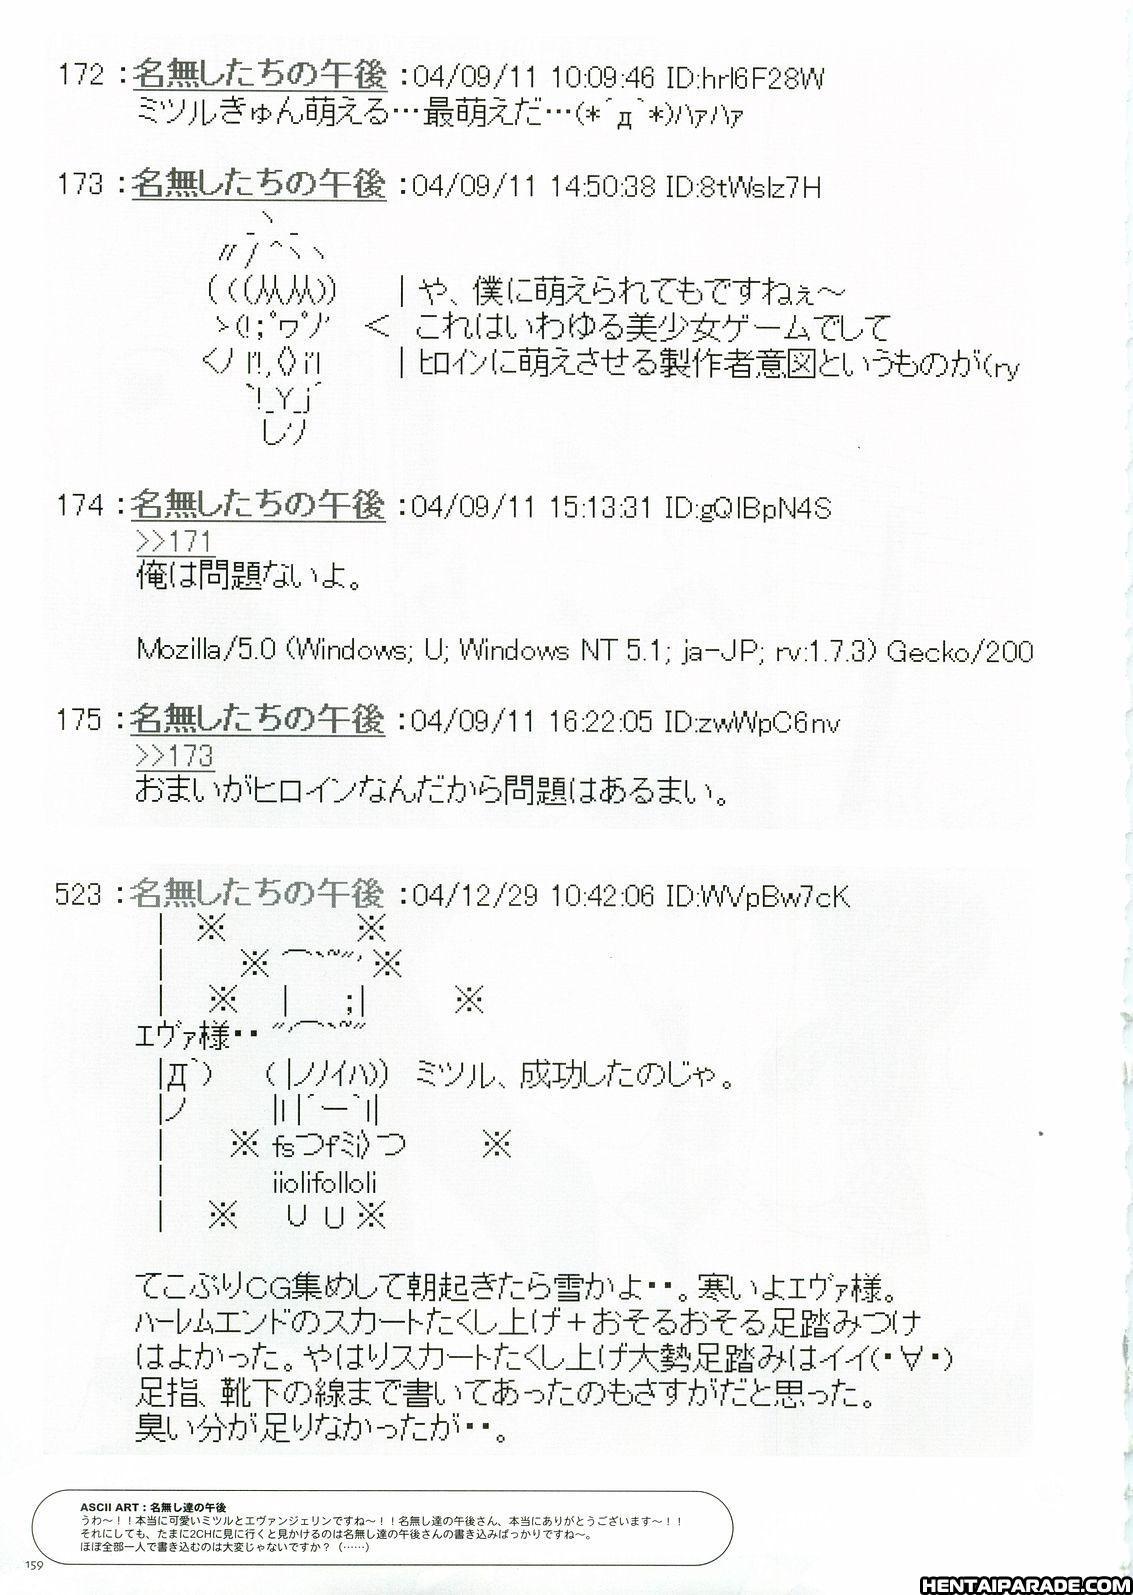 172 ：名無したちの午後 ：04/09/11 10:09:46 ID:hrl6F28W
ミツルきゅん萌える…最萌えだ…(*´д｀*)ﾊｧﾊｧ
173 ：名無したちの午後 ：04/09/11 14:50:38 ID:8tWsIz7H
｜や、僕に萌えられてもですねぇ～
＜ これはいわゆる美少女ゲームでして
｜ﾋﾛｲﾝに萌えさせる製作者意図というものが(ry
174 ：名無したちの午後 ：04/09/11 15:13:31 ID:gQIBpN4S
>>171
俺は問題ないよ。
Mozilla/5.0 (Windows; U; Windows NT 5.1; ja-JP; rv:1.7.3) Gecko/200
175 ：名無したちの午後 ：04/09/11 16:22:05 ID:zwWpC6nv
>>173
おまいがヒロインなんだから問題はあるまい。
523 ：名無したちの午後 ：04/12/29 10:42:06 ID:WVpBw7cK
｜ ※ ※
｜ ※ ⌒｀~″′※
｜ ※ | ;| ※
ｴヴｧ様・・ ″′⌒｀~″
|Д｀） （ |ノノイハ)） ミツル、成功したのじゃ。
|ノ |l |´ー｀l|
｜ ※ fsつfﾐi)つ ※
｜ iiolifolloli
｜ ※ ∪ ∪ ※
てこぶりCG集めして朝起きたら雪かよ・・。寒いよｴヴｧ様。
ﾊｰﾚﾑエンドのスカートたくし上げ＋おそるおそる足踏みつけ
はよかった。やはりスカートたくし上げ大勢足踏みはイイ(・∀・)
足指、靴下の線まで書いてあったのもさすがだと思った。
臭い分が足りなかったが・・。
ASCII ART：名無し達の午後
うわ～！！本当に可愛いミツルとエヴァンジェリンですね～！！名無し達の午後さん、本当にありがとうございます～！！
それにしても、たまに2CHに見に行くと見かけるのは名無し達の午後さんの書き込みばっかりですね～。
ほぼ全部一人で書き込むのは大変じゃないですか？（……）
159
HENTAIPARADE.COM